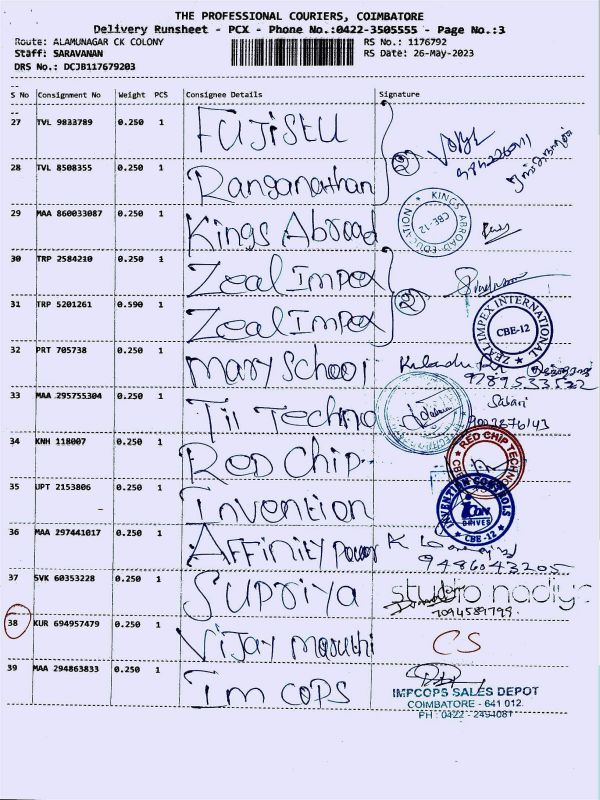 THE PROFESSIONAL COURIERS, COIMBATORE
Delivery Runsheet - PCX - Phone No.:0422-3505555 - Page No.:3
Route: ALAMUNAGAR CK COLONY RS No.: 1176792
Staff: SARAVANAN RS Date: 26-May-2023
DRS No.: DCJB117679203
S No Consignment No Weight PCS Consignee Details Signature
27 TVL 9833789 0.250 1 Fujistu
28 TVL 8508355 0.250 1 Ranganathan
29 MAA 860033087 0.250 1 Kings Abroad KINGS ABROAD EDUCATION CBE-12
30 TRP 2584210 0.250 1 Zeal Impex
31 TRP 5201261 0.590 1 Zeal Impex ZEAL IMPEX INTERNATIONAL CBE-12
32 PRT 705738 0.250 1 Mary School 9789533522
33 MAA 295755304 0.250 1 Tii Techno Sabari 9003876143
34 KNH 118007 0.250 1 Red Chip RED CHIP TECHNO
35 UPT 2153806 0.250 1 Invention INVENTION CONTROLS ICON DRIVES CBE-12
36 MAA 297441017 0.250 1 Affinity power 9486043205
37 SVK 60353228 0.250 1 Supriya studio nadiya 7094589799
38 KUR 694957479 0.250 1 Vijay Maruthi CS
39 MAA 294863833 0.250 1 Im cops
IMPCOPS SALES DEPOT
COIMBATORE - 641 012.
PH : 0422 - 2494081